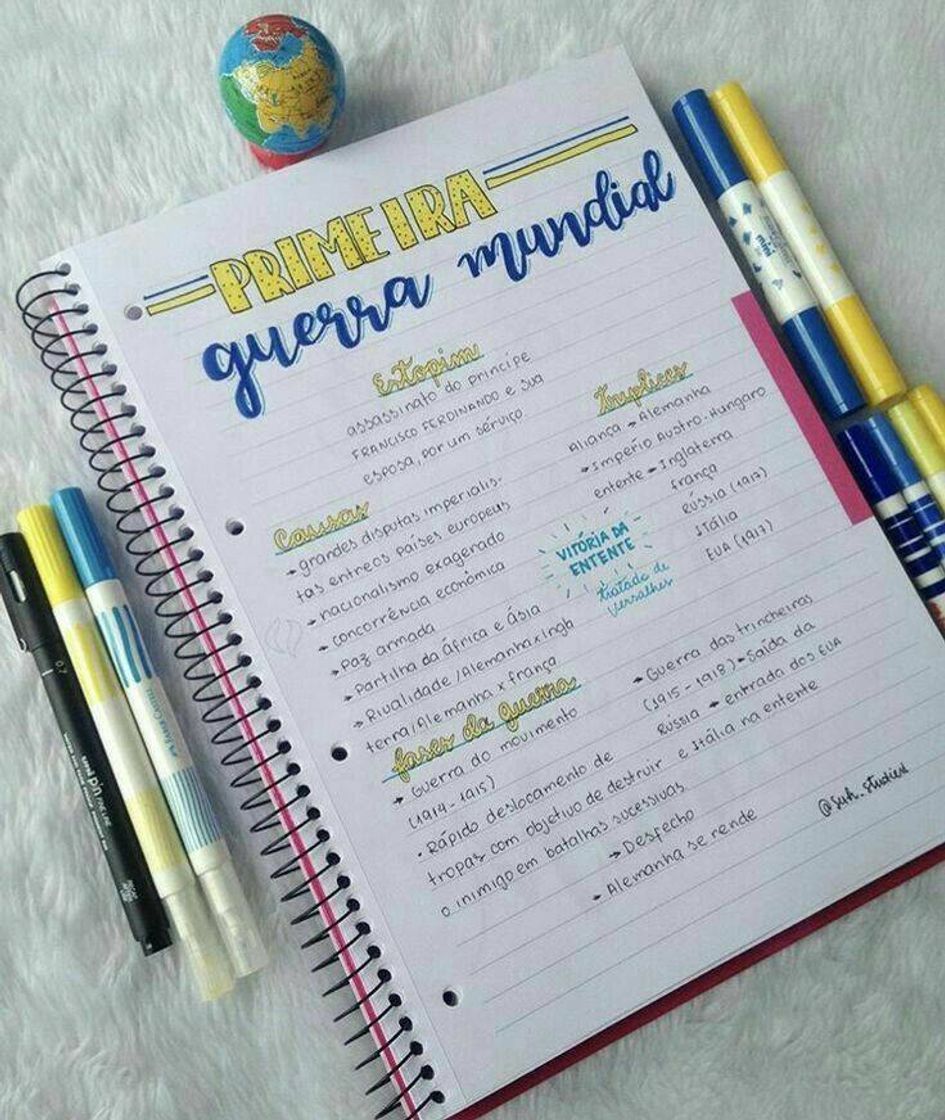 PRIMEIRA
guerra mundial
Estopim
assassinato do príncipe
FRANCISCO FERDINANDO e sua
esposa, por um sérviço
Causas
→ grandes disputas imperialis-
tas entreos países europeus
→ nacionalismo exagerado
→ concorrência econômica
→ Paz armada
→ Partilha da África e Ásia
→ Rivalidade/Alemanha x Ingla
terra/Alemanha x frança
Tríplices
Aliança → Alemanha
→ Império Austro-Hungaro
entente → Inglaterra
frança
Rússia (1917)
Itália
EUA (1917)
VITÓRIA DA
ENTENTE
tratado de
Versalhes
fases da guerra
→ Guerra do movimento
(1914-1915)
• Rápido deslocamento de
tropas com objetivo de destruir
o inimigo em batalhas sucessivas
→ Guerra das trincheiras
(1915-1918) → Saída da
Rússia → entrada dos EUA
e Itália na entente
→ Desfecho
→ Alemanha se rende
@suh_studies
0.7
uni pin FINE LINE